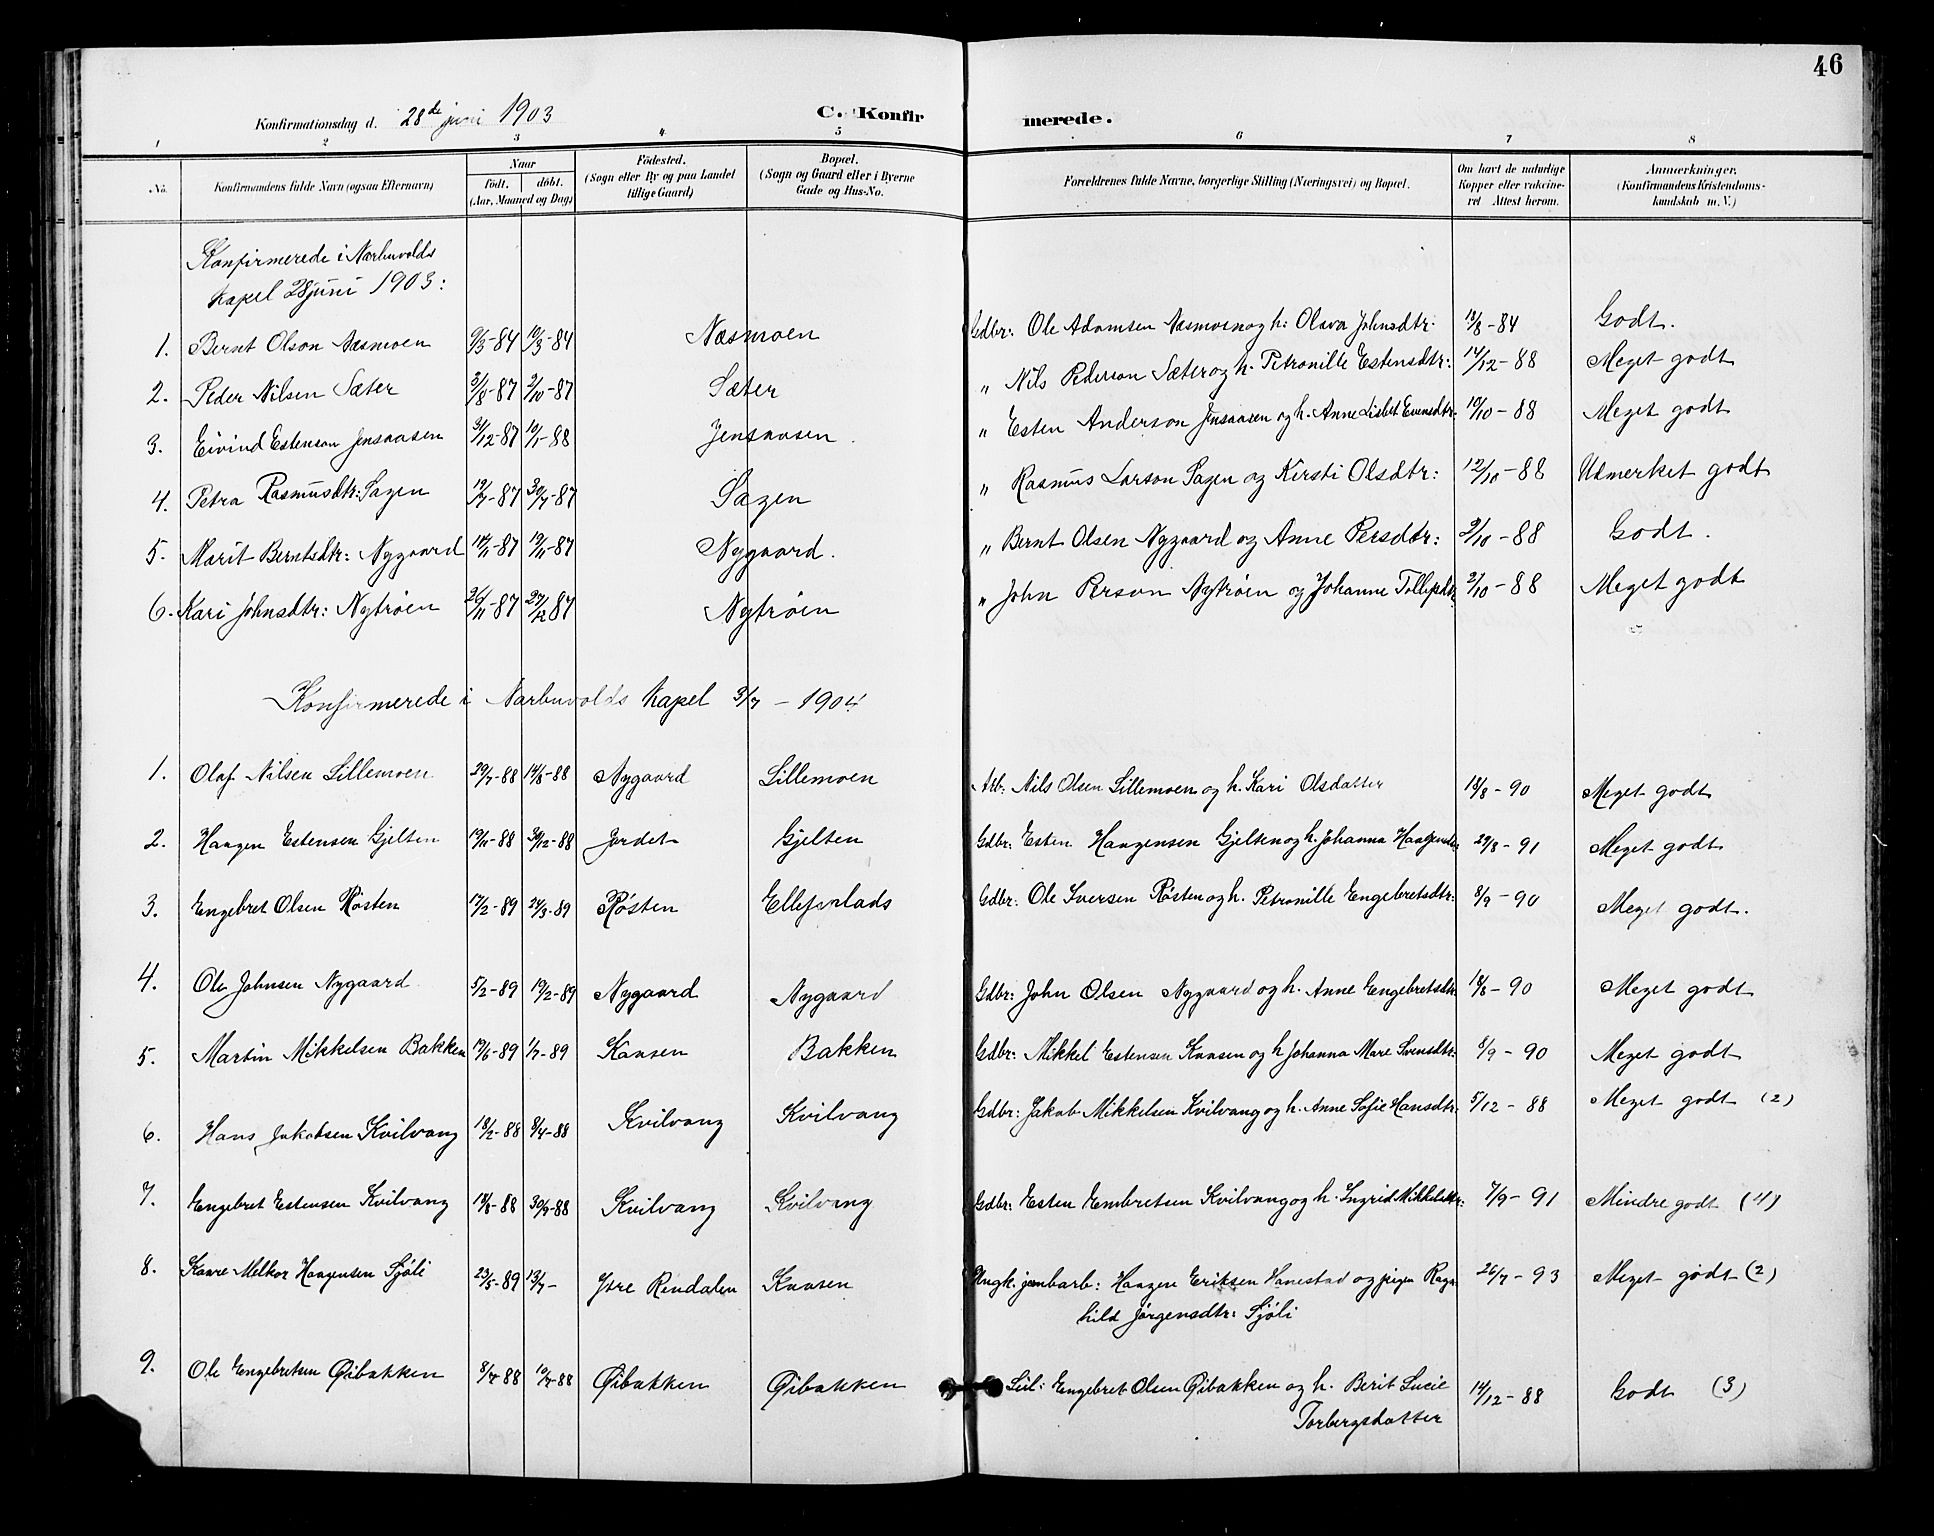 46
Konfirmationsdag d. 28de juni 1903
C. Konfirmerede.
1 2 3 4 5 6 7 8
No. Konfirmandens fulde Navn (ogsaa Efternavn) Naar født. døbt. (Aar, Maaned og Dag) Fødested. (Sogn eller By og paa Landet tillige Gaard) Bopæl. (Sogn og Gaard eller i Byerne Gade og Hus-No. Forældrenes fulde Navne, borgerlige Stilling (Næringsvei) og Bopæl. Om havt de naturlige Kopper eller vakcineret Attest herom. Anmerkninger. (Konfirmandens Kristendomskundskab m. V.)
Konfirmerede i Narbuvolds
Kapel 28 juni 1903:
1. Bernt Olson Næsmoen 9/3-84 19/3-84 Næsmoen Gdbr: Ole Adamsen Næsmoen og h: Olava Johnsdtr. 18/8-84 Godt.
2. Peder Nilsen Sæter 3/8-87 2/10-87 Sæter " Nils Pederson Sæter og h. Petronille Estensdtr: 14/12-88 Meget godt
3. Eivind Estenson Jensaasen 31/12-87 19/1-88 Jensaasen. " Esten Anderson Jensaasen og h. Anne Lisbet Evensdtr. 10/10-88 Meget godt
4. Petra Rasmusdtr: Sagen 19/7-87 30/7-87 Sagen " Rasmus Larson Sagen og Kirsti Olsdtr: 12/10-88 Udmerket godt
5. Marit Berntsdtr: Nygaard 14/11-87 19/11-87 Nygaard. " Bernt Olsen Nygaard og Anne Persdtr: 2/10-88 Godt.
6. Kari Johnsdtr: Nytrøen 26/11-87 27/12-87 Nytrøen " John Person Nytrøen og Johanne 2/10-88 Meget godt
Konfirmerede i Narbuvolds Kapel 3/7 - 1904
1. Olaf Nilsen Lillemoen 29/7-88 14/8-88 Nygaard Lillemoen Arb: Nils Olsen Lillemoen og h. Kari Olsdatter 18/8-90 Meget godt
2. Haagen Estensen Gjelten 19/11-88 30/12-88 Jordet Gjelten Gdbr: Esten Haagensen Gjelten og h. Johanna 29/8-91 Meget godt
3. Engebret Olsen Røsten 17/2-89 24/3-89 Røsten Gdbr: Ole Iversen Røsten og h. Petronille Engebretsdtr: 8/9-90 Meget godt.
4. Ole Johnsen Nygaard 5/2-89 19/2-89 Nygaard Nygaard Gdbr: John Olsen Nygaard og h. Anne Engebretsdtr 18/8-90 Meget godt
5. Martin Mikkelsen Bakken 19/6-89 1/7-89 Kaasen Bakken Gdbr: Mikkel Estensen Kaasen og h Johanna Mare Svensdtr: 8/9-90 Meget godt
6. Hans Jakobsen Kvilvang 18/2-88 8/4-88 Kvilvang Kvilvang Gdbr: Jakob Mikkelsen Kvilvang og h. Anne Sofie Hansdtr. 5/12-88 Meget godt (2)
7. Engebret Estensen Kvilvang 18/8-88 30/9-88 Kvilvang Kvilvang Gdbr: Esten Embretsen Kvilvang og h. Ingrid Mikkelsdtr: 7/9-91 Mindre godt (4)
8. Kaare Melkor Haagensen Sjøli 23/5-89 13/7- Ytre Rendalen Kaasen Ungk. jernbarb: Haagen Eriksen Hanestad og pigen Ragn 26/7-93 Meget godt (2)
hild Jørgensdtr: Sjøli
9. Ole Engebretsen Øibakken 8/7-88 19/7-88 Øibakken Øibakken Engebret Olsen Øibakken og h. Berit Lucie 14/12-88 Godt (3)
Torbergsdatter